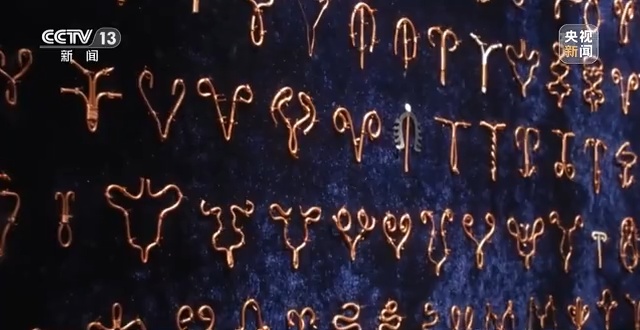 CCTV 13
新闻
央视
新闻